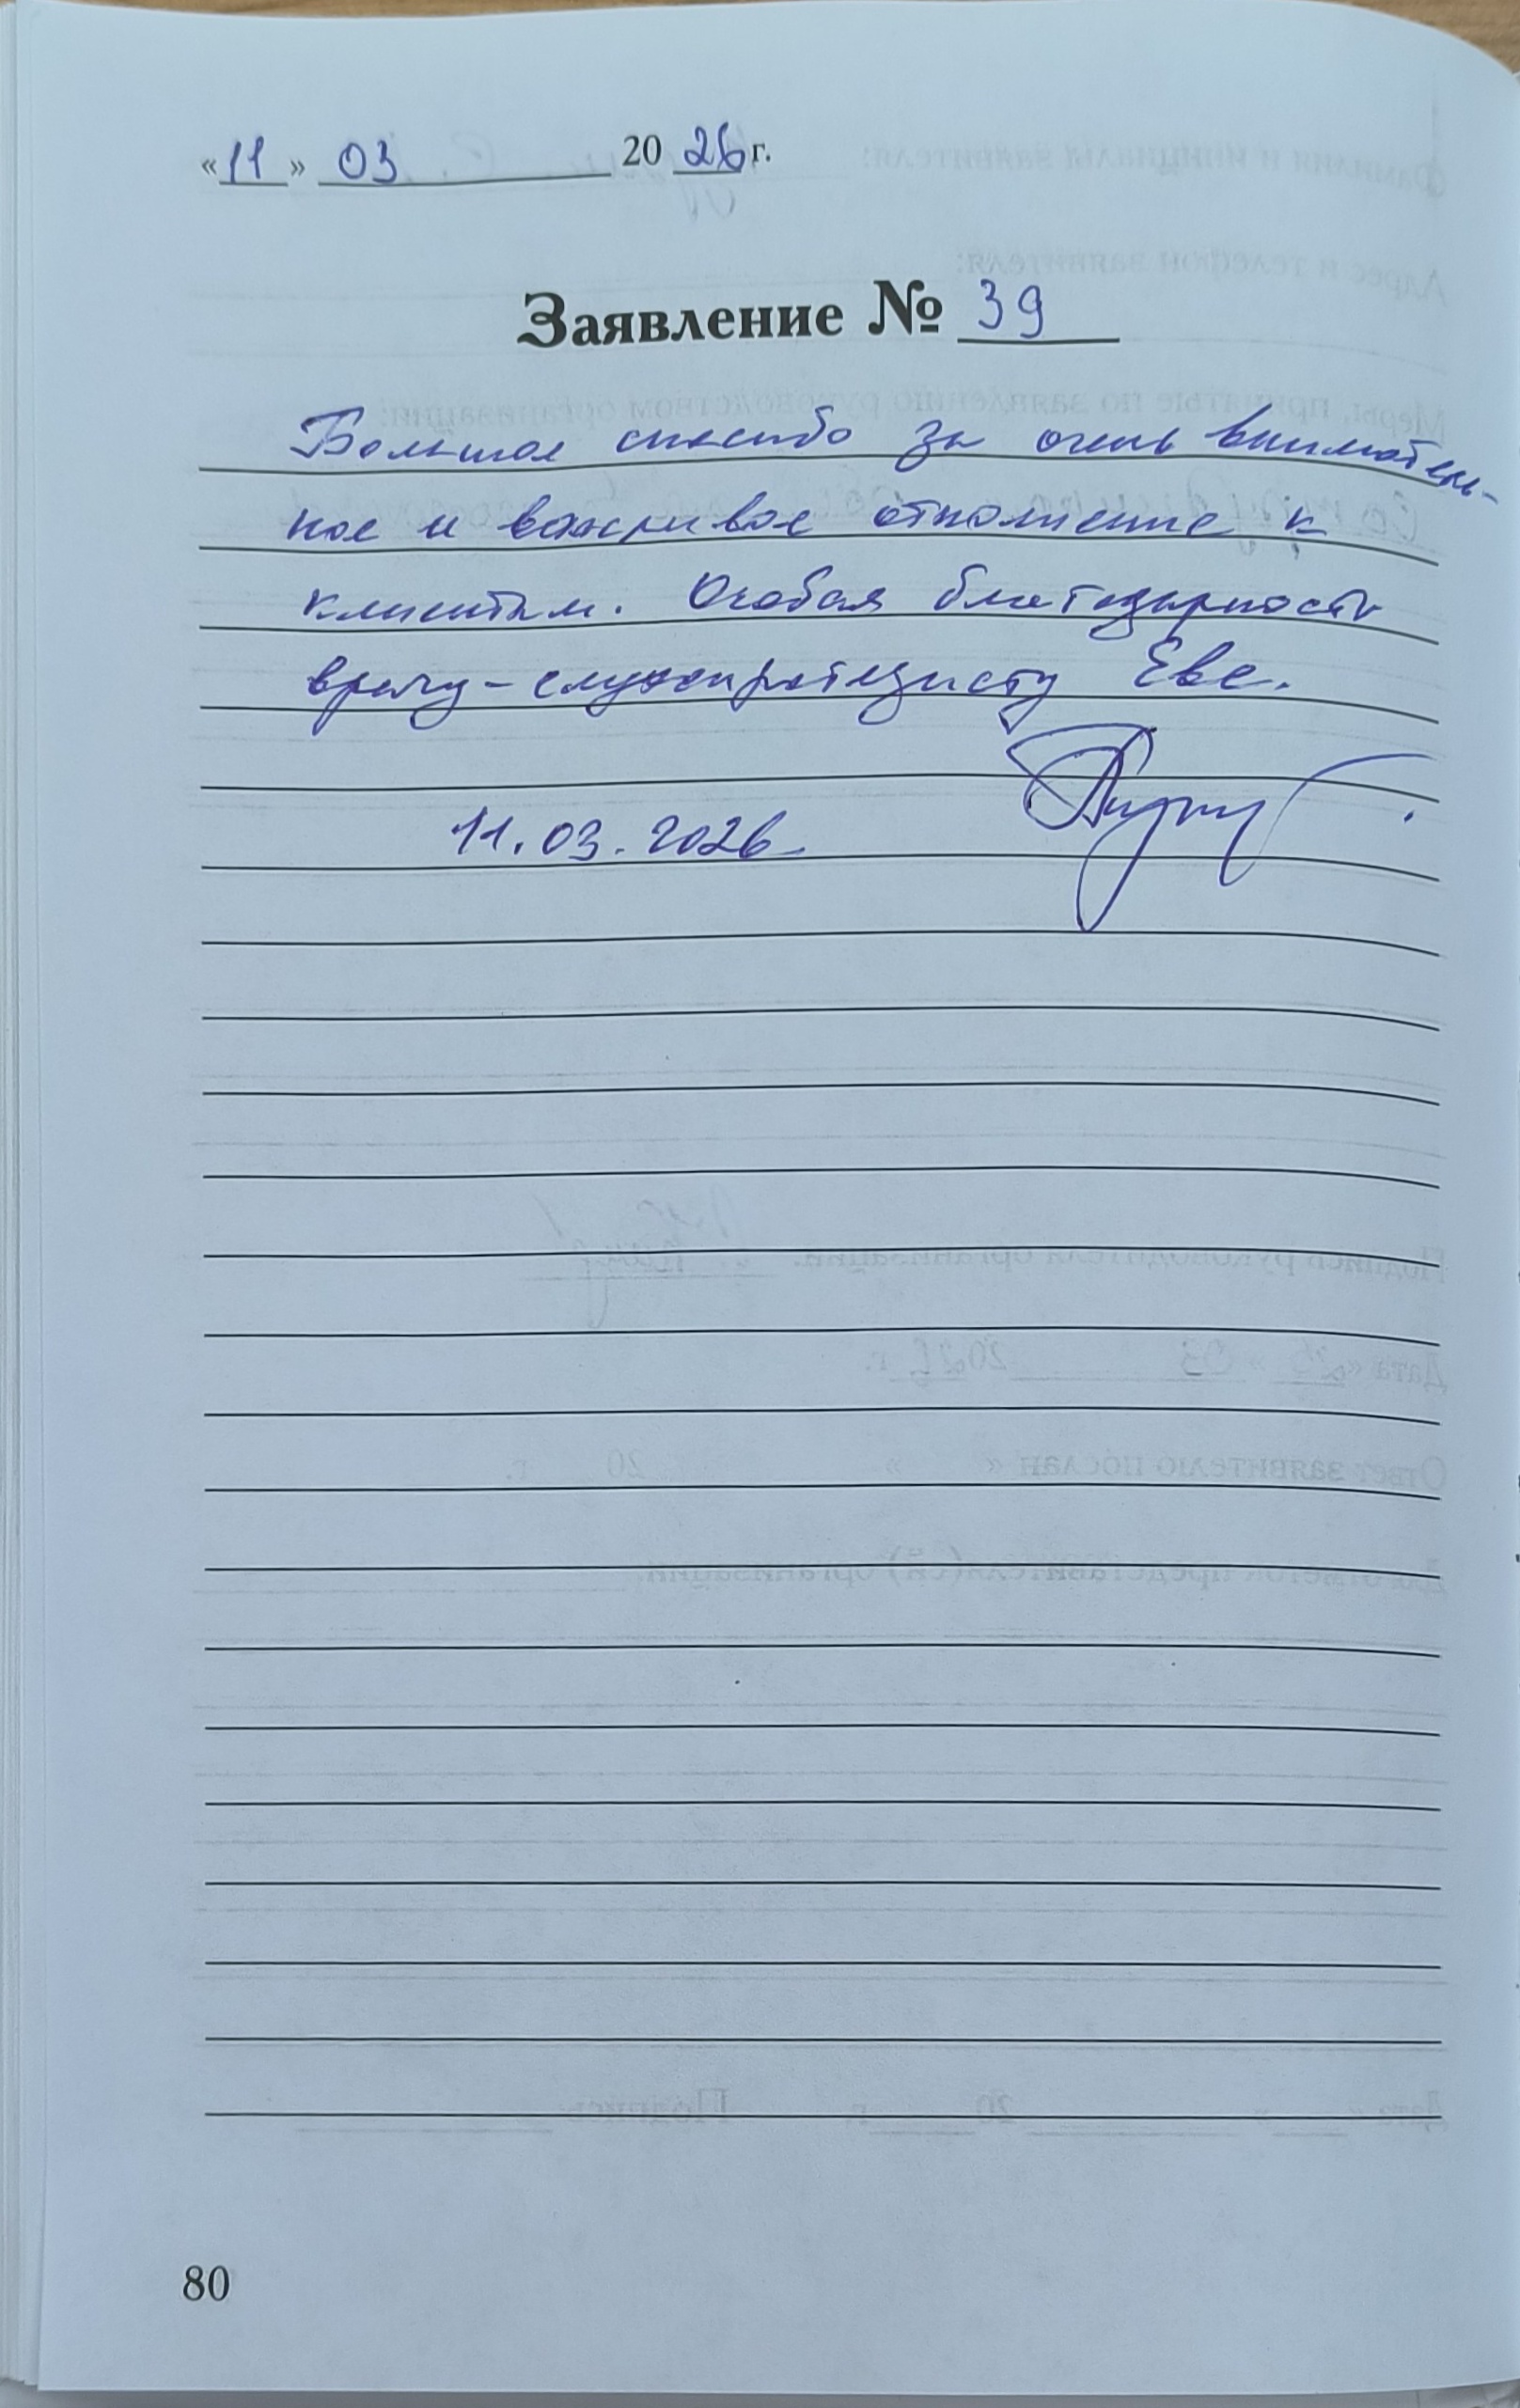 «11» 03 2026 г.
Заявление № 39
Большое спасибо за очень вниматель-
ное и вежливое отношение к
клиентам. Особая благодарность
врачу-слухопротезисту Еве.
11.03.2026
80